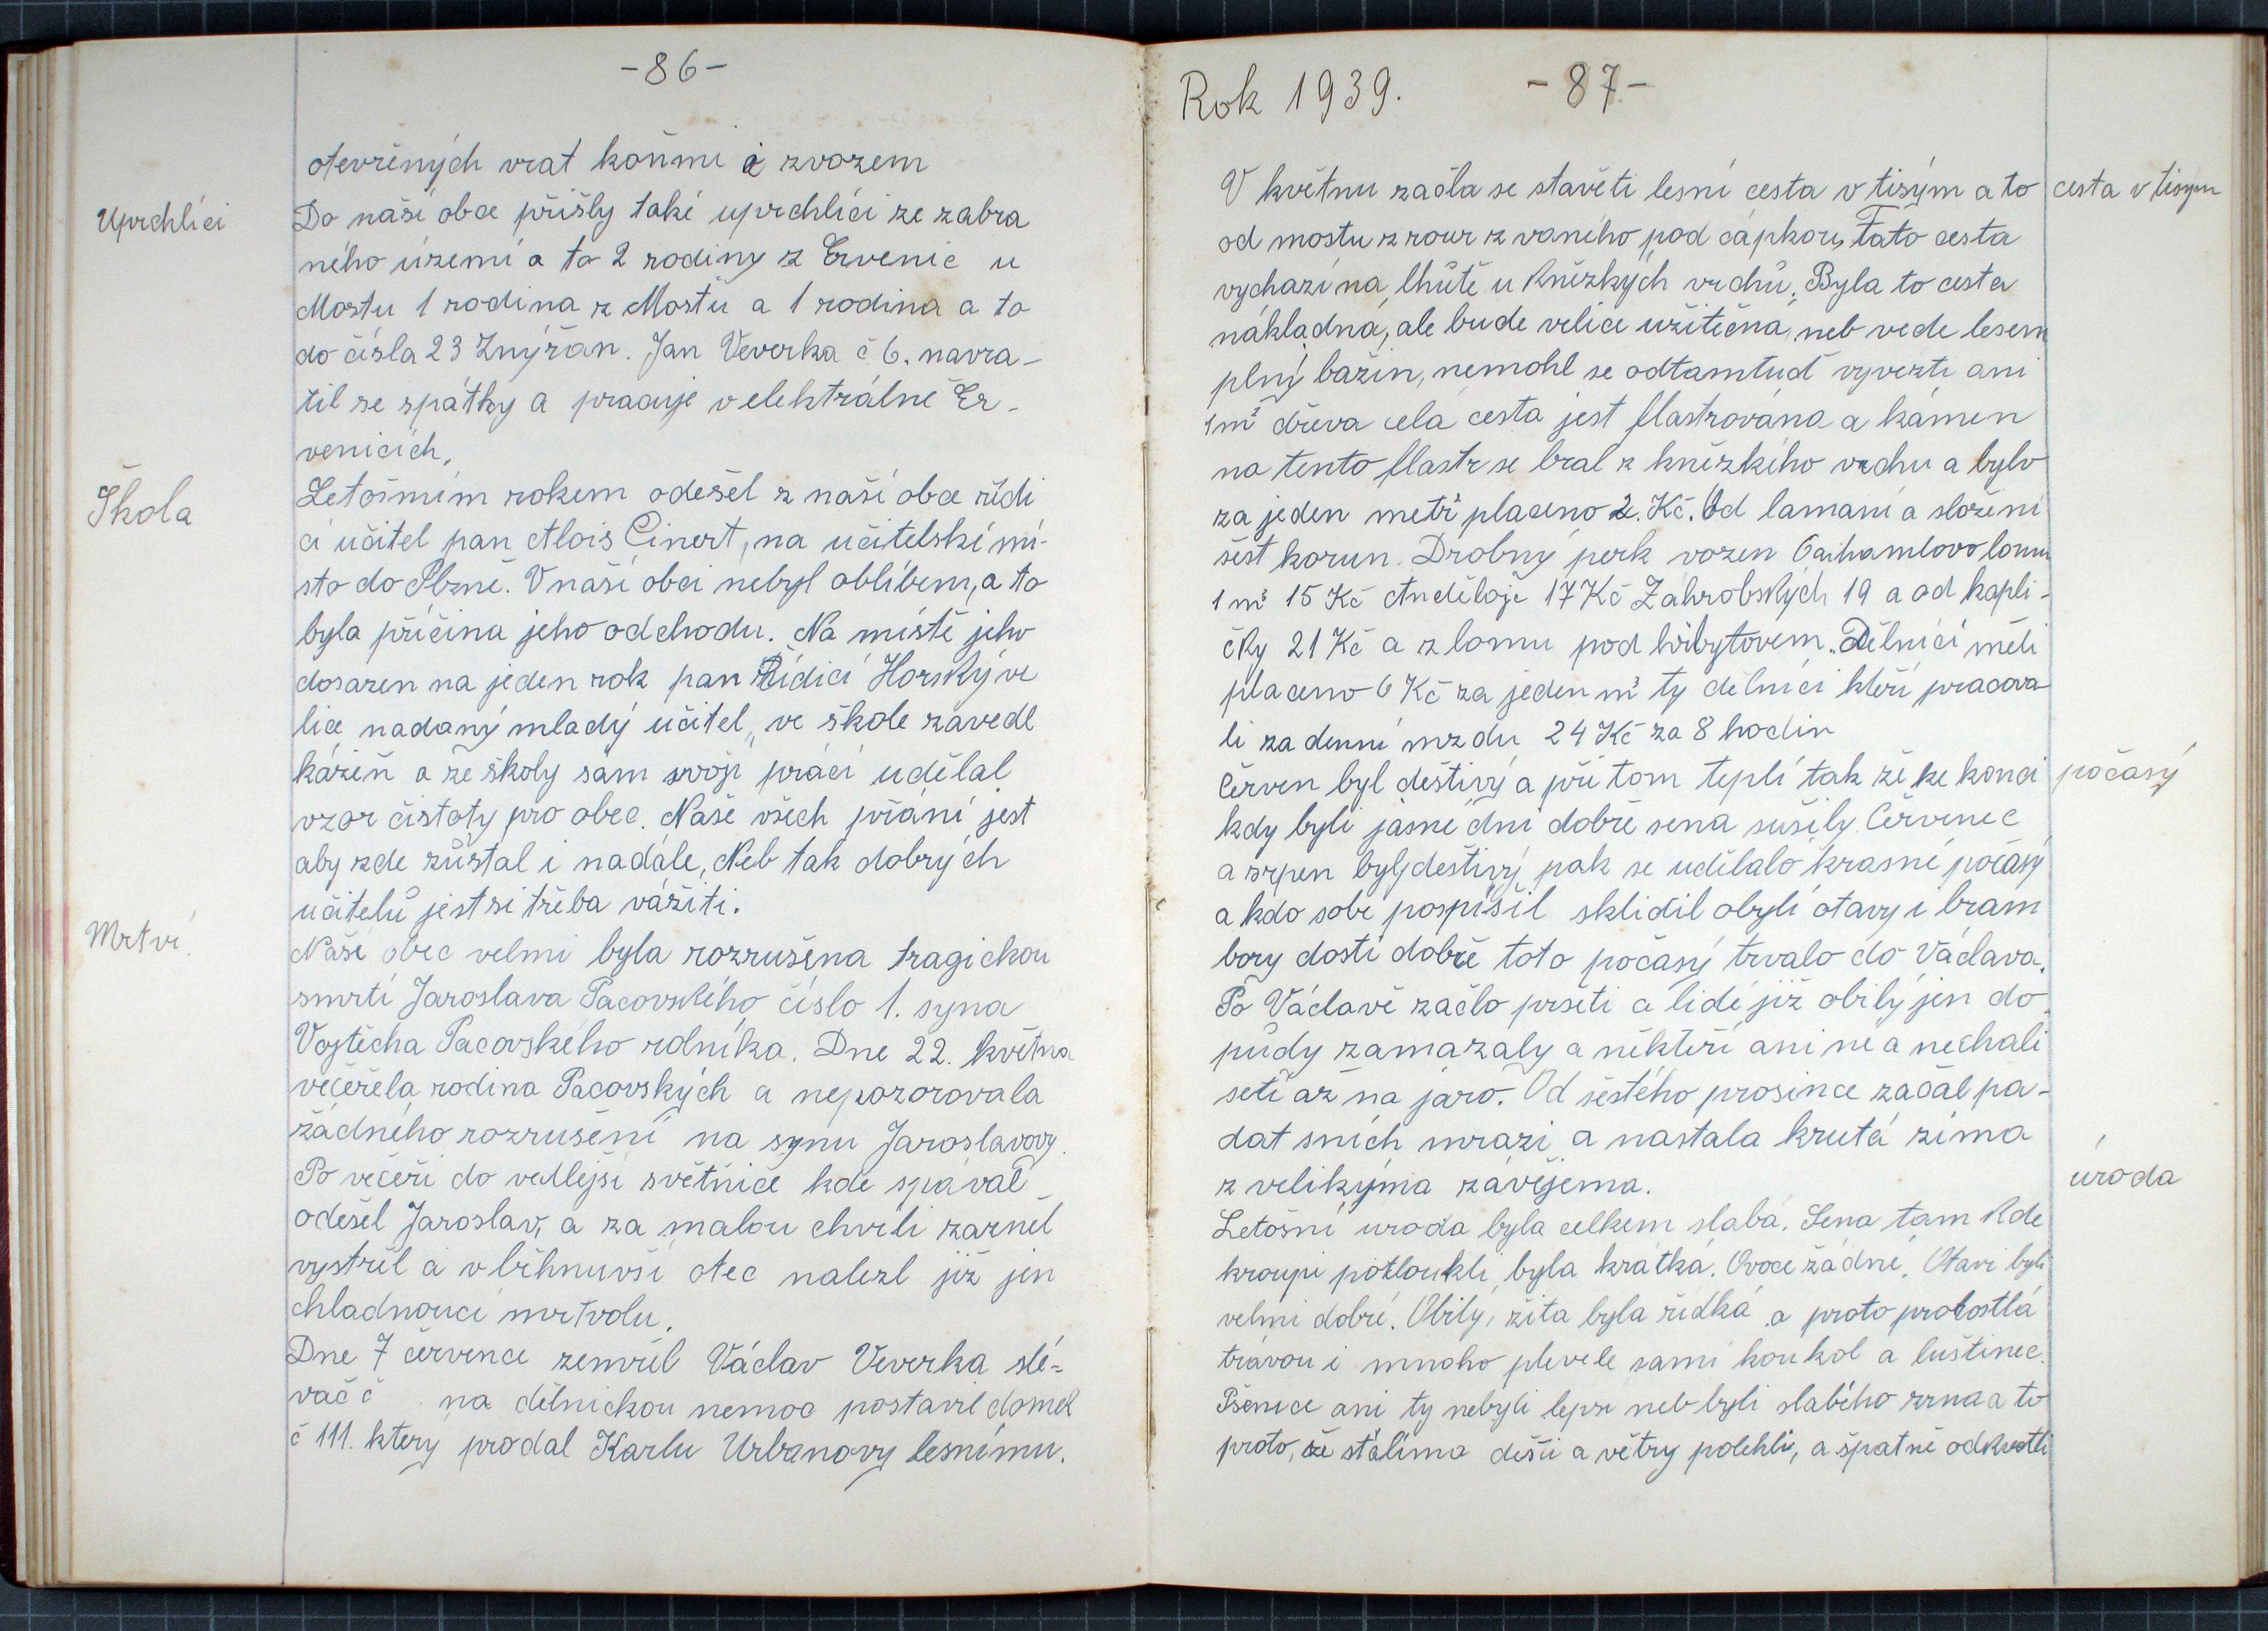 -86-
otevřených vrat koňmi i zvozem
Uprchlíci
Do naší obce přišly také uprchlíci ze zabra
ného území a to 2 rodiny z Ervenic u
Mostu 1 rodina z Mostu a 1 rodina a to
do čísla 23 Znýřan. Jan Veverka č 6. navra-
til se spátky a pracuje v elektrálně Er-
venicích.
Škola
Letošním rokem odešel z naší obce řídí
cí učitel pan Alois Cinert, na učitelské mí-
sto do Plzně. V naší obci nebyl oblíbem, a to
byla příčina jeho odchodu. Na místě jeho
dosazen na jeden rok pan Řídící Horský ve
lice nadaný mladý učitel, ve škole zavedl
kázeň a ze školy sám svojí prácí udělal
vzor čistoty pro obec. Naše všech přání jest
aby zde zůstal i nadále, Neb tak dobrých
učitelů jest si třeba vážiti.
Mrtví.
Naše obec velmi byla rozrušena tragickou
smrtí Jaroslava Pacovského číslo 1. syna
Vojtěcha Pacovského rolníka. Dne 22. května
večeřela rodina Pacovských a nepozorovala
žádného rozrušení na synu Jaroslavovy.
Po večeři do vedlejší světnice kde spával
odešel Jaroslav, a za malou chvíli zazněl
vystřel a vběhnuvší otec nalezl již jen
chladnoucí mrtvolu.
Dne 7 července zemřel Václav Veverka slé-
vač č na dělnickou nemoc postavil domek
č 111. ktery prodal Karlu Urbanovy lesnímu.
Rok 1939.
-87-
V květnu začla se stavěti lesní cesta v tisým a to
cesta v tisým
od mostu z rour zvaného pod cápkou, Tato cesta
vychazí na lhůtě u Kněžkých vrchů. Byla to cesta
nákladná, ale bude velice užitečná, neb vede lesem
plný bažin, nemohl se odtamtud vyvezti ani
1m² dřeva celá cesta jest flastrována a kámen
na tento flastr se bral z kněžkého vrchu a bylo
za jeden metr² placeno 2. Kč. Od lamaní a složení
šest korun. Drobný perk vozen lomu
1 m² 15 Kč Andělojc 17 Kč Záhrobských 19 a od kapli-
čky 21 Kč a z lomu pod hřbytovem. Dělníci měli
placeno 6 Kč za jeden m² ty dělníci kteří pracova-
li za denní mzdu 24 Kč za 8 hodin
Červen byl deštivý a při tom teplí tak že ke konci
počasý
kdy byli jasné dni dobře sena sušily. Červenec
a srpen byl deštivý pak se udělalo krasné počasý
a kdo sobě pospíšil sklidil obylí otavy i bram
bory dosti dobře toto počasý trvalo do Václava.
Po Václavě začlo pršeti a lidé již obilý jen do
půdy zamazaly a někteří ani ne a nechali
setí až na jaro. Od šestého prosince začal pa-
dat sních mrazi a nastala krutá zima
z velikýma závějema.
úroda
Letošní uroda byla celkem slabá. Sena tam kde
kroupi potloukli byla krátká. Ovoce žádné. Otavi byli
velmi dobré. Obilý, žita byla řídká a proto prorostlá
trávou i mnoho plevele samí koukol a luštinec.
Pšenice ani ty nebyli lepší neb byli slabého zrna a to
proto, že stálíma dešti a větry polehli, a špatně odkvetli